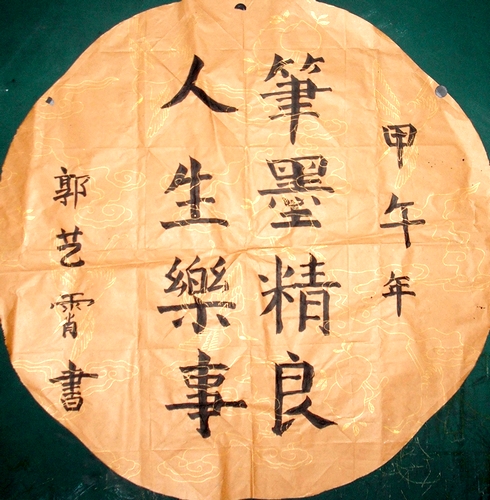 甲午年
筆墨精良
人生樂事
郭艺霄書